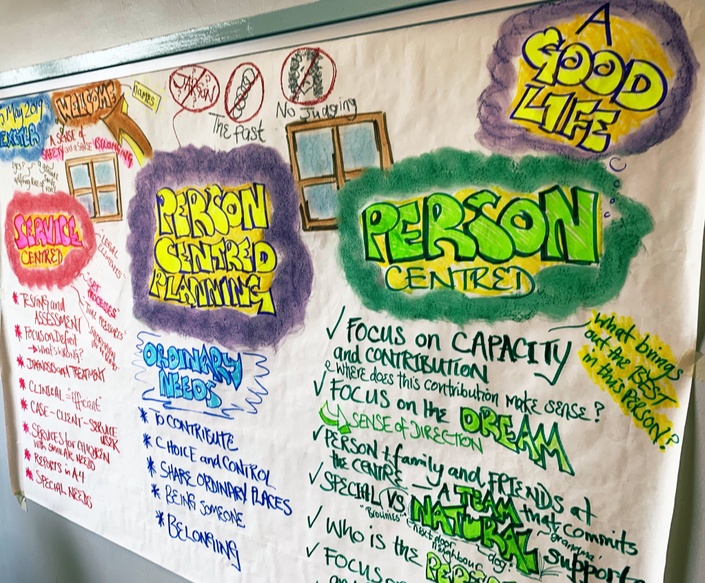 May 2019
EXETER
WELCOME
NAMES
A SENSE of
SAFETY and a SENSE of BELONGING
JARGON
The Past
No Judging
A
GOOD
LIFE
SERVICE
CENTRED
* TESTING and
ASSESSMENT
* FOCUS on Deficit
* CLINICAL = efficient
* CASE - CLIENT - SERVICE
USER
* SERVICES for CHILDREN
with SIMILAR NEED
* REPORTS in A4
* SPECIAL NEEDS
PERSON
CENTRED
PLANNING
ORDINARY
NEEDS
* TO CONTRIBUTE
* CHOICE and CONTROL
* SHARE ORDINARY PLACES
* BEING SOMEONE
* BELONGING
PERSON
CENTRED
✓ FOCUS on CAPACITY
and CONTRIBUTION
where does this contribution make sense?
✓ FOCUS on the DREAM
SENSE of DIRECTION
✓ PERSON + family and FRIENDS at
the CENTRE - A TEAM that commits
✓ SPECIAL VS NATURAL support
"Brownies" next door neighbour dog! grandma
✓ WHO is the
✓ FOCUS
what brings
out the BEST
in this PERSON?